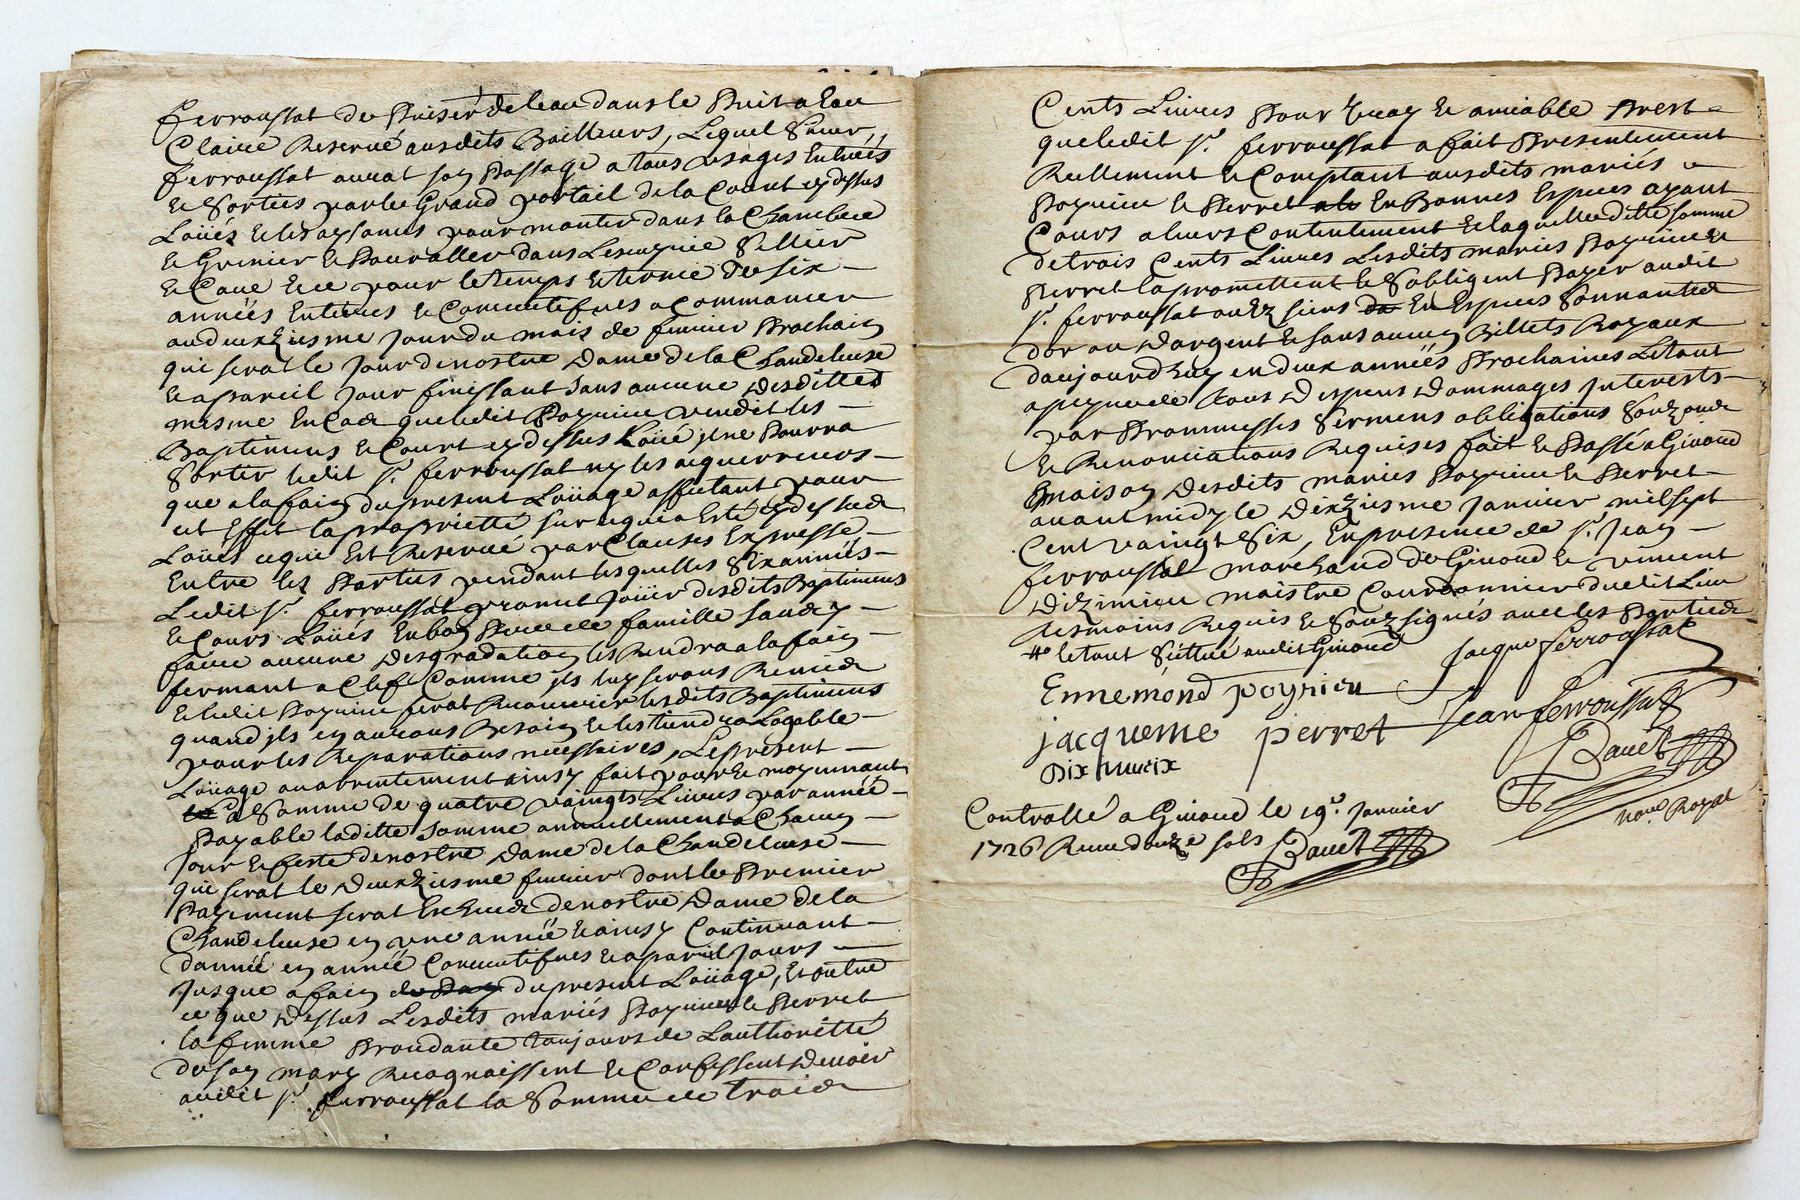 ferroussat de Puiser de leau dans le Puit a Eau
Claire Reservé ausdits Bailleurs, Lequel Sieur,
ferroussat aurat son Passage a tous usages Entrées
& Sorties par le Grand portail de la Court cy dessus
Loüéz & les aysances pour monter dans la Chambre
& Grenier & Pour aller dans Lescuyrie Sellier
& Cave & ce pour le temps & terme de six
années Entieres & Consecutifves a Commancer
au deuxziesme Jour du mois de feuvrier Prochain
qui serat le Jour de nostre Dame de la Chandeleuse
& a pareil Jour finissant sans aucune desdittes
mesme En Cas que ledit Poyrieu vendit les
Baptimens & Court cy dessus Loüé, il ne Pourra
Sortir ledit Sr. ferroussat ny les acquerreurs
que a la fain du present Loüage affectant pour
cet Effet la proprietté sur ce qui a Esté cy dessus
Loüés ce qui Est Reservé par Clauses Expresse
Entre les Parties pendant lesquelles Six années
Ledit Sr. ferroussat promet Joüir desdits Baptimens
& Cours Loüés En bon Pere de famille sans y
faire aucune Desgradation les Rendra a la fain
fermant a Clef Comme ils luy serons Remis
& ledit Poyrieu serat Recouvrir lesdits Baptimens
quand ils en aurons Besoin & les tiendra Logeable
pour les Reparations necessaires, Le present
Loüage ou arrentement ainsy fait pour & moyennant
la Somme de quatre vaingts Livres par année
Payable laditte somme annuellement a Chacun
Jour & feste de nostre Dame de la Chandeleuse
qui serat le Deuxziesme feuvrier dont le Premier
Payement serat Escheu de nostre Dame de la
Chandeleuse en une année & ainsy Continuant
d'année en année Consecutifves & a pareil Jours
Jusque a fain du present Loüage, Et outre
ce que Dessus Lesdits mariés Poyrieu & Perret
la femme Proudante toujours de Lauthoritté
de son mary Recognaissent & Confessent Devoir
audit Sr. ferroussat la Somme de trois
Cents Livres Pour Vray & amiable Prest
que ledit Sr. ferroussat a fait Presentement
Reellement & Comptant ausdits mariés
Poyrieu & Perret En Bonnes Especes ayant
Cours a leurs Contentement & laquelle ditte somme
de trois Cents Livres Lesdits mariés Poyrieu &
Perret la promettent & S'obligent Payer audit
Sr. ferroussat ou ez siens En Especes Sonnantes
d'or ou Dargent & sans aucun Billets Royaux
daujourdhuy en deux années Prochaines Le tout
a peyne de tous Despens Dommages Interests
par Prommesses Sermens obligations Souz
& Renonciations Requises fait & Passé a Givord
maison Desdits mariés Poyrieu & Perret
avant midy le Dixziesme Janvier mil sept
Cent vaingt Six, En presence de Sr. Jean
ferroussat marchand de Givord & vincent
maistre Courdonnier dudit Lieu
tesmoins Requis & Souzsignés avec les Parties
le tout Sittué audit Givord
Jacque ferroussat
Ennemond poyrieu
Jean ferroussat
jacqueme perret
Bauet
not. Royal
Controllé a Givord le 19e. Janvier
1726 Receu douze sols Bauet